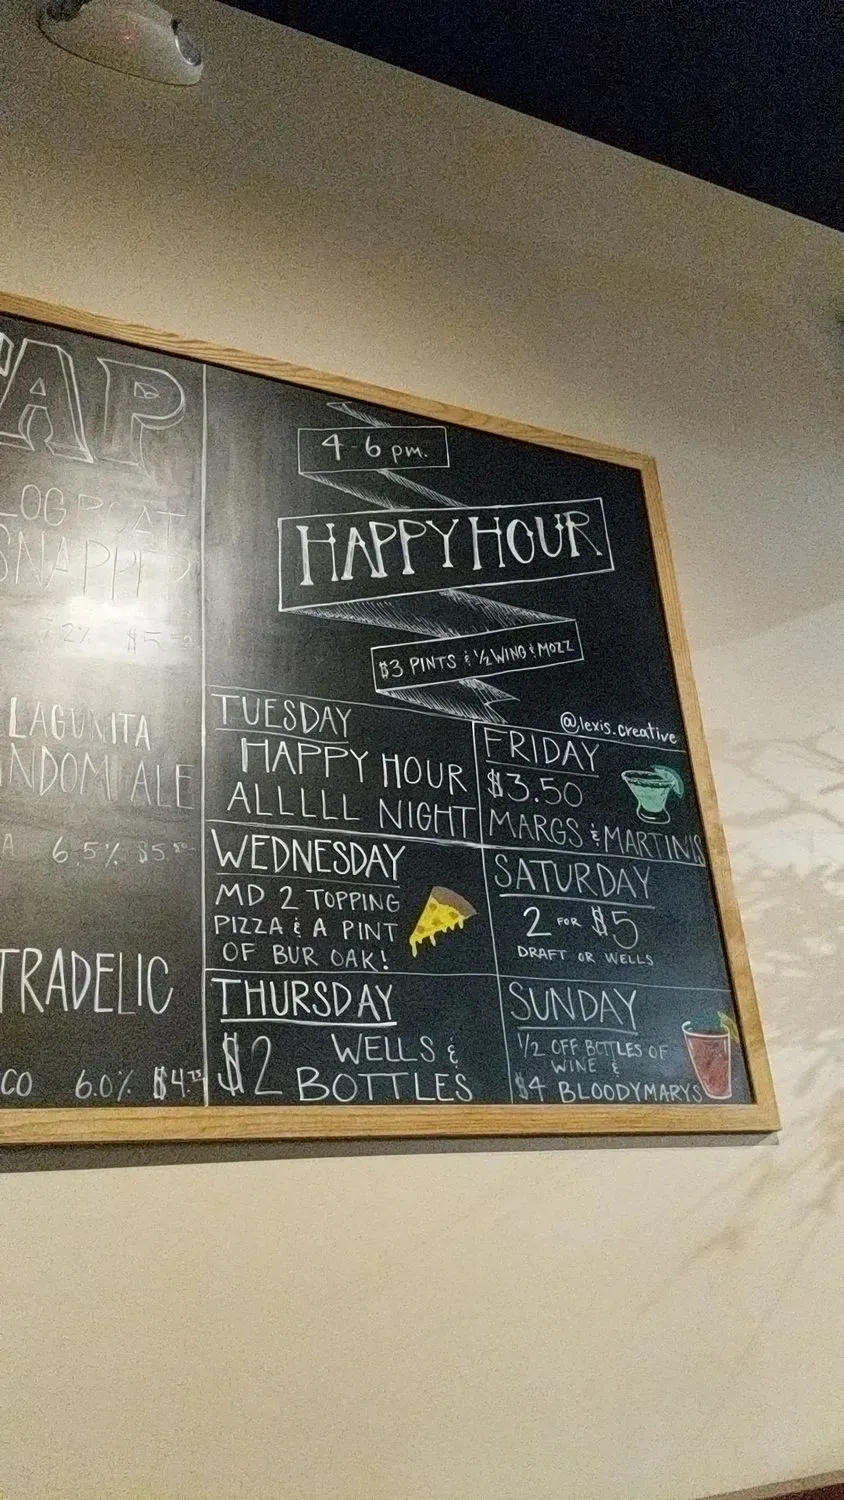 TAP
LOG BOAT
SNAPPER
7.2% $5.50
LAGUNITA
NDOM ALE
A 6.5% $5.50
TRADELIC
CO 6.0% $4.75
4-6 pm.
HAPPY HOUR
$3 PINTS & 1/2 WING & MOZZ
@lexis.creative
TUESDAY
HAPPY HOUR
ALLLLL NIGHT
WEDNESDAY
MD 2 TOPPING
PIZZA & A PINT
OF BUR OAK!
THURSDAY
$2 WELLS &
BOTTLES
FRIDAY
$3.50
MARGS & MARTINIS
SATURDAY
2 FOR $5
DRAFT OR WELLS
SUNDAY
1/2 OFF BOTTLES OF
WINE &
$4 BLOODYMARYS